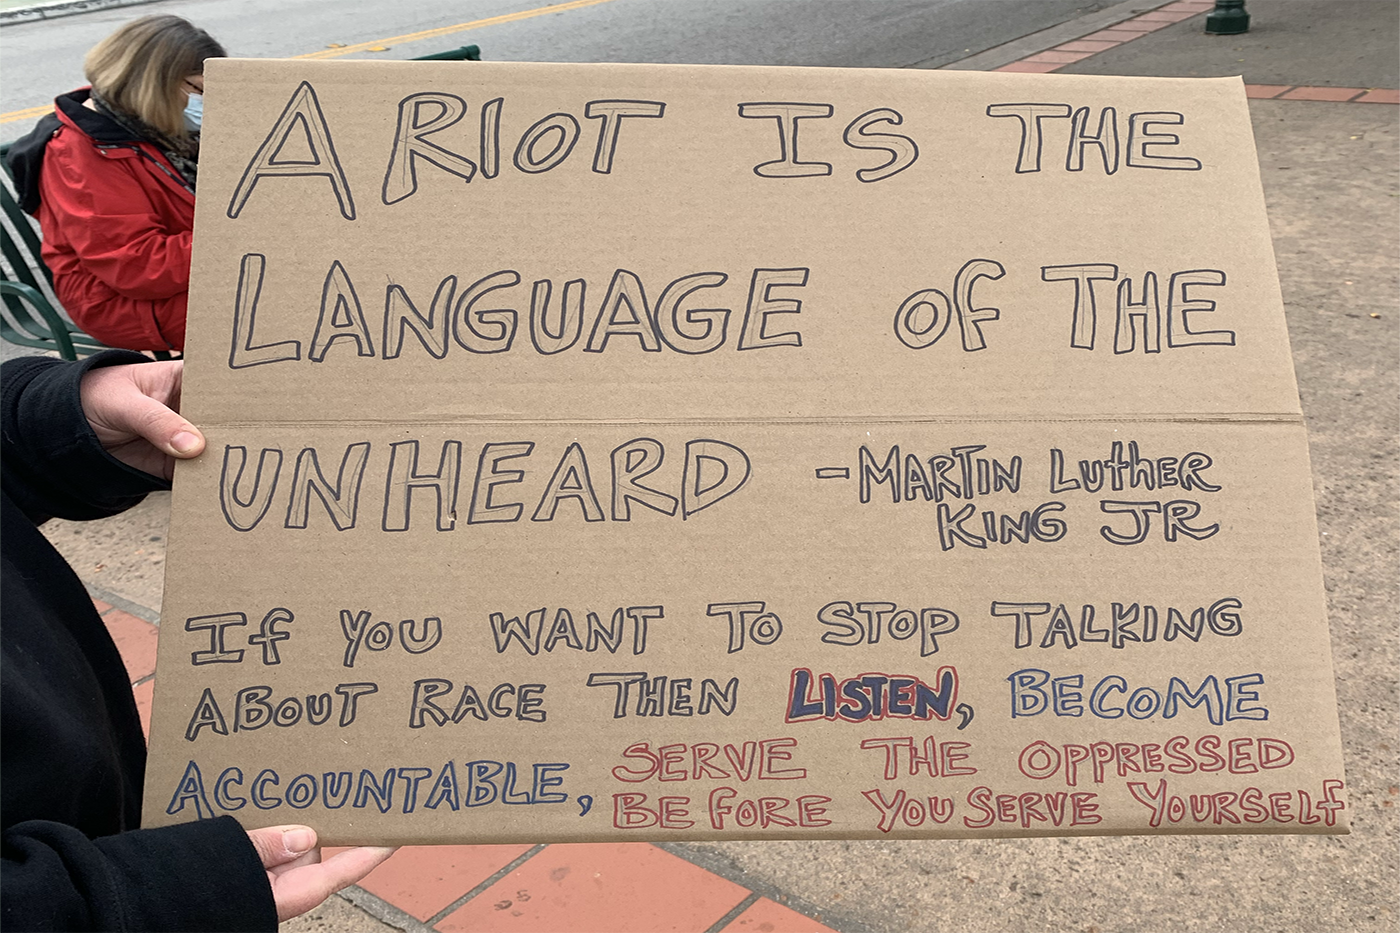 A RIOT IS THE
LANGUAGE OF THE
UNHEARD -MARTIN LUTHER
KING JR
IF YOU WANT TO STOP TALKING
ABOUT RACE THEN LISTEN, BECOME
ACCOUNTABLE, SERVE THE OPPRESSED
BEFORE YOU SERVE YOURSELF